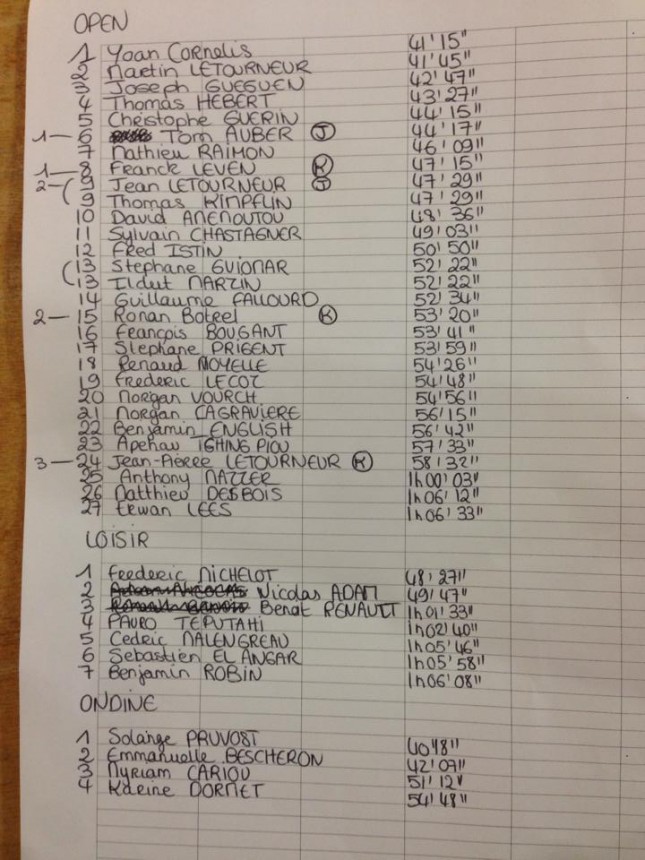 OPEN
1 Yoan CORNELIS 41'15"
2 Martin LETOURNEUR 41'45"
3 Joseph GUEGUEN 42'47"
4 Thomas HEBERT 43'27"
5 Christophe GUERIN 44'15"
1— 6 Tom AUBER J 44'17"
7 Mathieu RAIMON 46'09"
1— 8 Franck LEVEN K 47'15"
2— 9 Jean LETOURNEUR J 47'29"
9 Thomas KIMPFLIN 47'29"
10 David AMEMOUTOU 48'36"
11 Sylvain CHASTAGNER 49'03"
12 Fred ISTIN 50'50"
13 Stephane GUIOMAR 52'22"
13 Ildut MARZIN 52'22"
14 Guillaume FALLOURD 52'34"
2— 15 Ronan Botrel K 53'20"
16 François BOUGANT 53'41"
17 Stephane PRIGENT 53'59"
18 Renaud MOYELLE 54'26"
19 Frederic LECOT 54'48"
20 Morgan VOURCH 54'56"
21 Morgan LAGRAVIERE 56'15"
22 Benjamin ENGLISH 56'42"
23 Apehau 57'33"
3— 24 Jean-Pierre LETOURNEUR K 58'32"
25 Anthony MAZZER 1h00'03"
26 Matthieu DESBOIS 1h06'12"
27 Erwan LEES 1h06'33"
LOISIR
1 Frederic MICHELOT 48'27"
2 Nicolas ADAM 49'47"
3 Benot RENAULT 1h01'33"
4 PAURO TEPUTAHI 1h02'40"
5 Cedric MALENGREAU 1h05'46"
6 Sebastien EL ANGAR 1h05'58"
7 Benjamin ROBIN 1h06'08"
ONDINE
1 Solange PRUVOST 40'48"
2 Emmanuelle BESCHERON 42'07"
3 Myriam CARIOU 51'12"
4 DORMET 54'48"